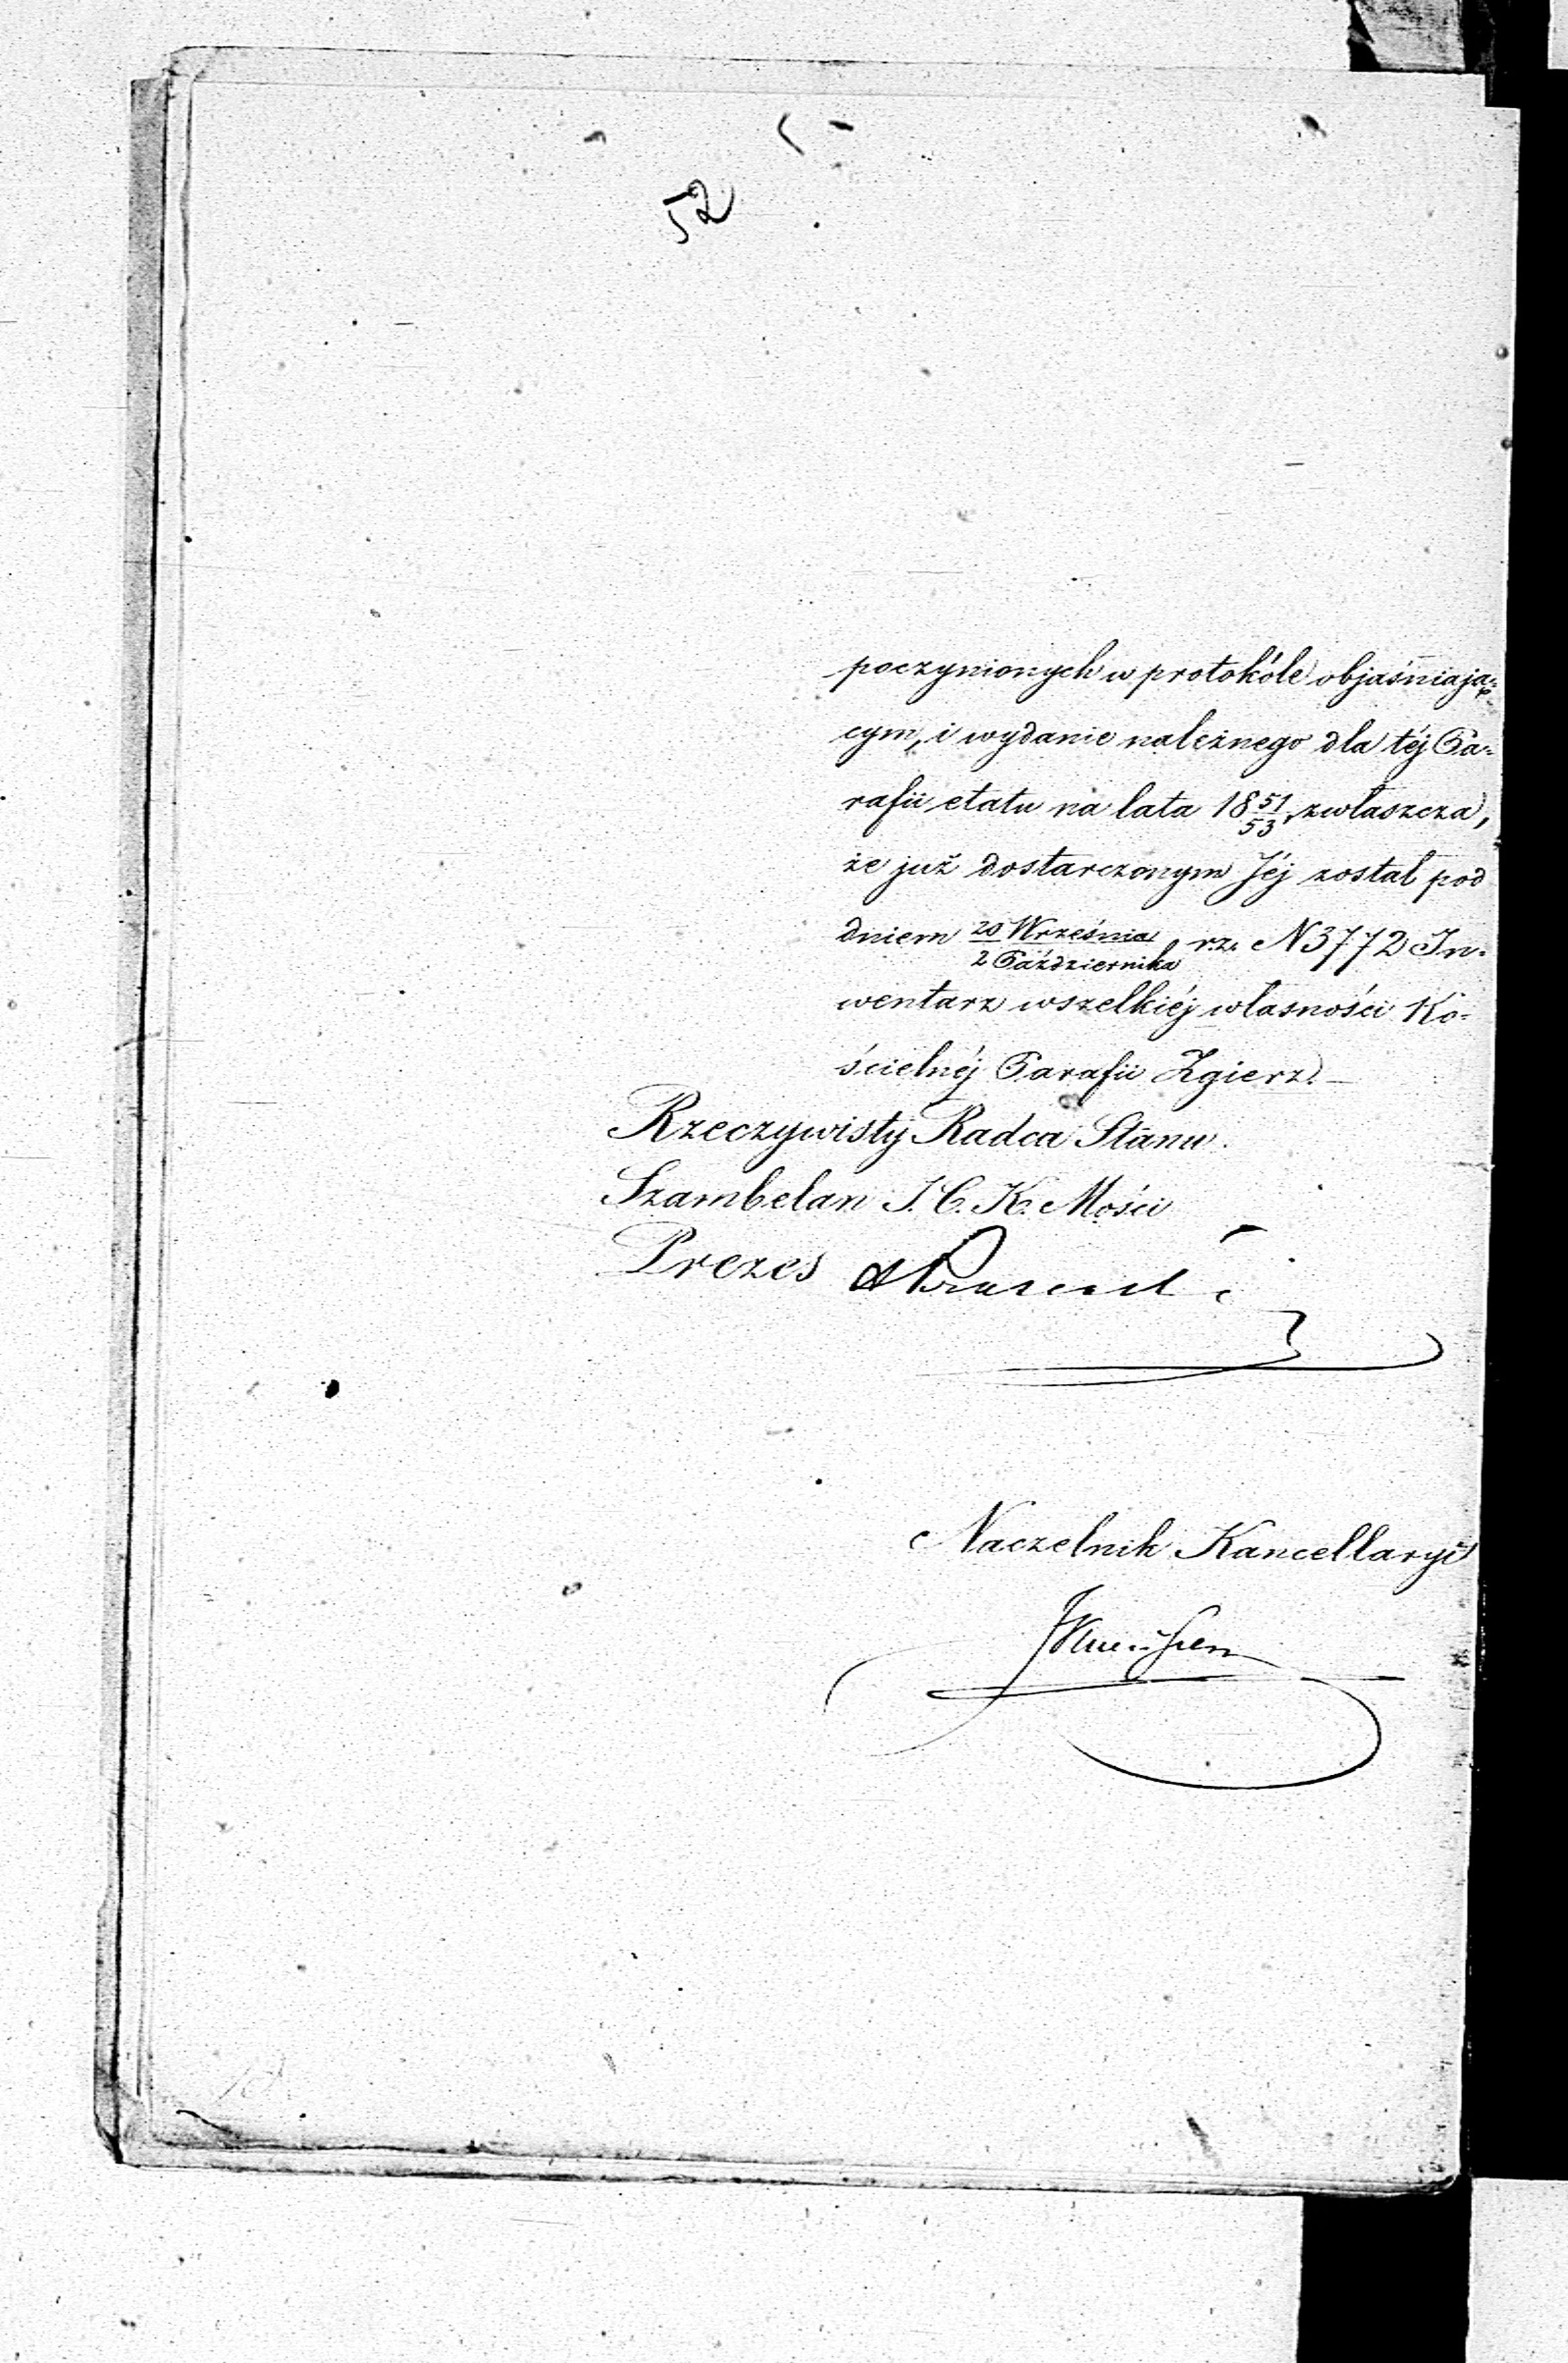 52
poczynionych w protokóle objaśniają-
cym, i wydanie należnego dla téj Pa-
rafii etatu na lata 18 51/53, zwłaszcza,
że już dostarczonym Jéj został pod
dniem 20 Września/2 Października r.z. N 3772 In-
wentarz wszelkiéj własności Ko-
ścielnéj Parafii Zgierz.—
Rzeczywisty Radca Stanu
Szambelan J. C. K. Mości
Prezes
Naczelnik Kancellaryi